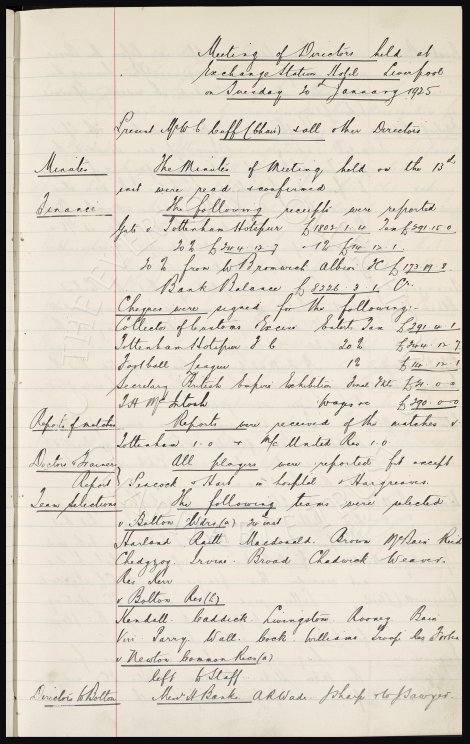 Meeting of Directors held at
Exchange Station Hotel Liverpool
on Tuesday 20th January 1925
Present Mr W C Cuff (Chair) & all other Directors
Minutes The Minutes of Meeting held on the 13th
inst were read & confirmed
Finance The following receipts were reported
Gate v Tottenham Hotspur £1802.1.4 Tax £291.15.0
20% £244.12.7 1% £14.12.1
20% from W Bromwich Albion FC £173.19.8
Bank Balance £8226.3.1 Cr.
Cheques were signed for the following:-
Collector of Customs Excise Entert Tax £291.4.1
Tottenham Hotspur F C 20% £244.12.7
Football League 1% £14.12.1
Secretary British Empire Exhibition £21.0.0
T H McIntosh Wages &c £290.0.0
Reports of matches Reports were received of the matches v
Tottenham 1.0 & M/c United Res 1.0
Doctor & Trainers All players were reported fit except
Report Peacock & Hart in hospital & Hargreaves.
Team Selections The following teams were selected
v Bolton Wdrs (a) inst
Harland Raitt Macdonald. Brown McBain Reid
Chedgzoy. Irvine. Broad Chadwick Weaver.
Res Kerr
v Bolton Res (h)
Kendall. Caddick. Livingstone. Rooney. Bain
Virr. Parry. Wall. Cock. Williams. Troup Res
v Newton Common Recs (a)
left to Staff.
Directors to Bolton Messrs H Banks A R Wade J Sharp & W J Sawyer.